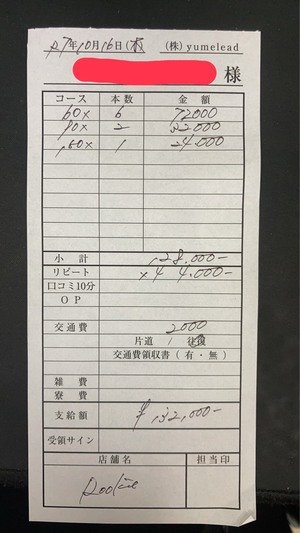 R7年10月16日(木) (株)yumelead
様
コース 本数 金額
60× 6 72000
80× 2 32000
160× 1 24000
小計 128,000-
リピート ×4 4,000-
口コミ10分
OP
交通費 2000
片道 / 往復
交通費領収書(有・無)
雑費
寮費
支給額 ¥132,000-
受領サイン
店舗名 担当印